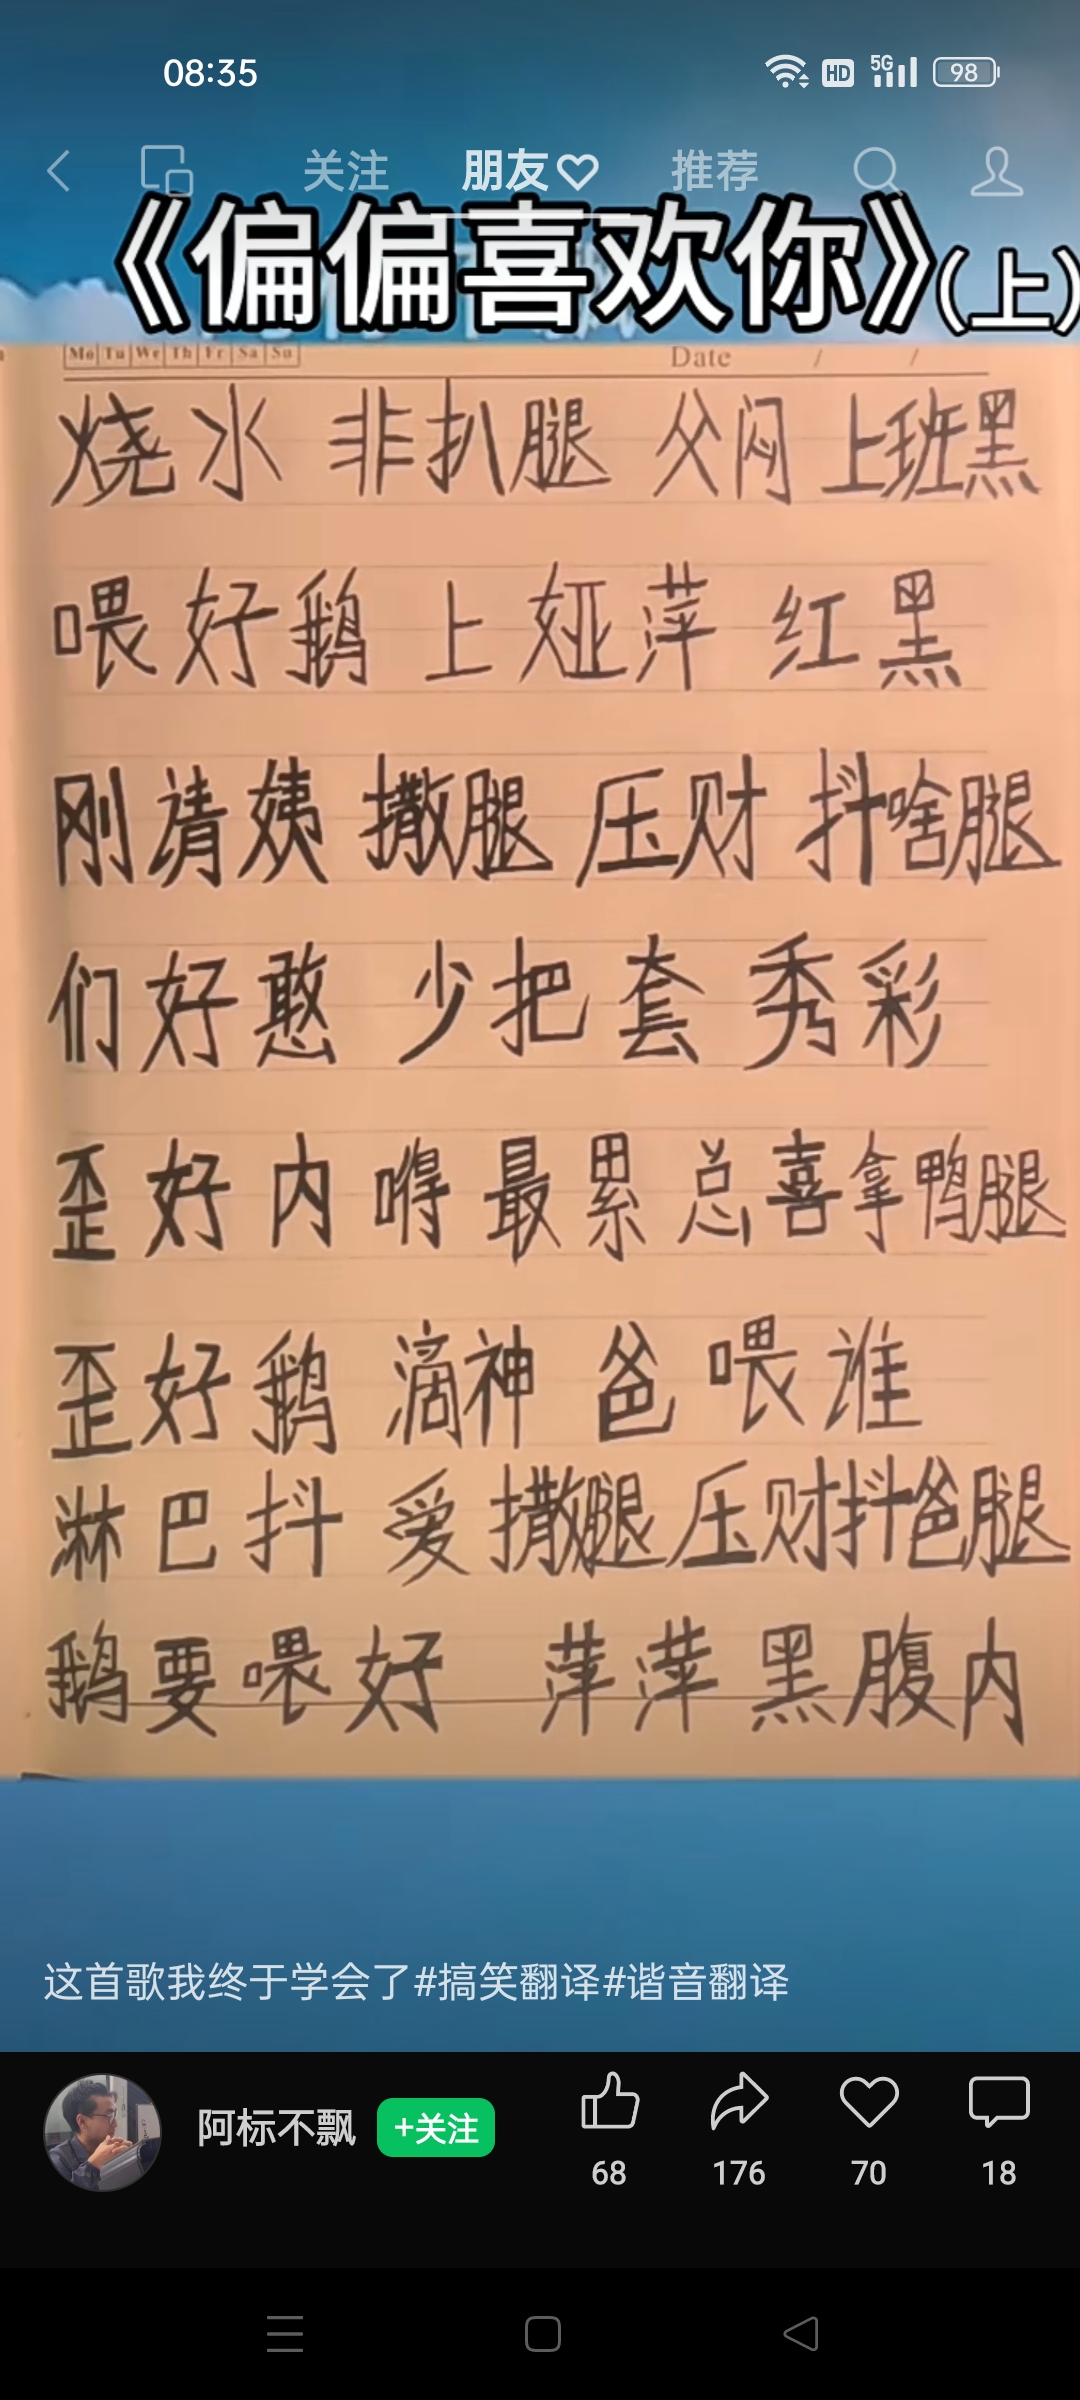 08:35 HD 5G 98
关注 朋友 推荐
《偏偏喜欢你》(上)
Mo Tu We Th Fr Sa Su Date / /
烧水 非扒腿 父闷 上班黑
喂好鹅 上娅萍 红黑
刚请姨 撒腿 压财 抖啥腿
们好憨 少把套 秀彩
歪好内 嘚最累 总喜拿鸭腿
歪好鹅 滴神 爸喂谁
淋巴抖 爱撒腿 压财抖爸腿
鹅要喂好 萍萍黑腹内
这首歌我终于学会了#搞笑翻译#谐音翻译
阿标不飘 +关注
68 176 70 18